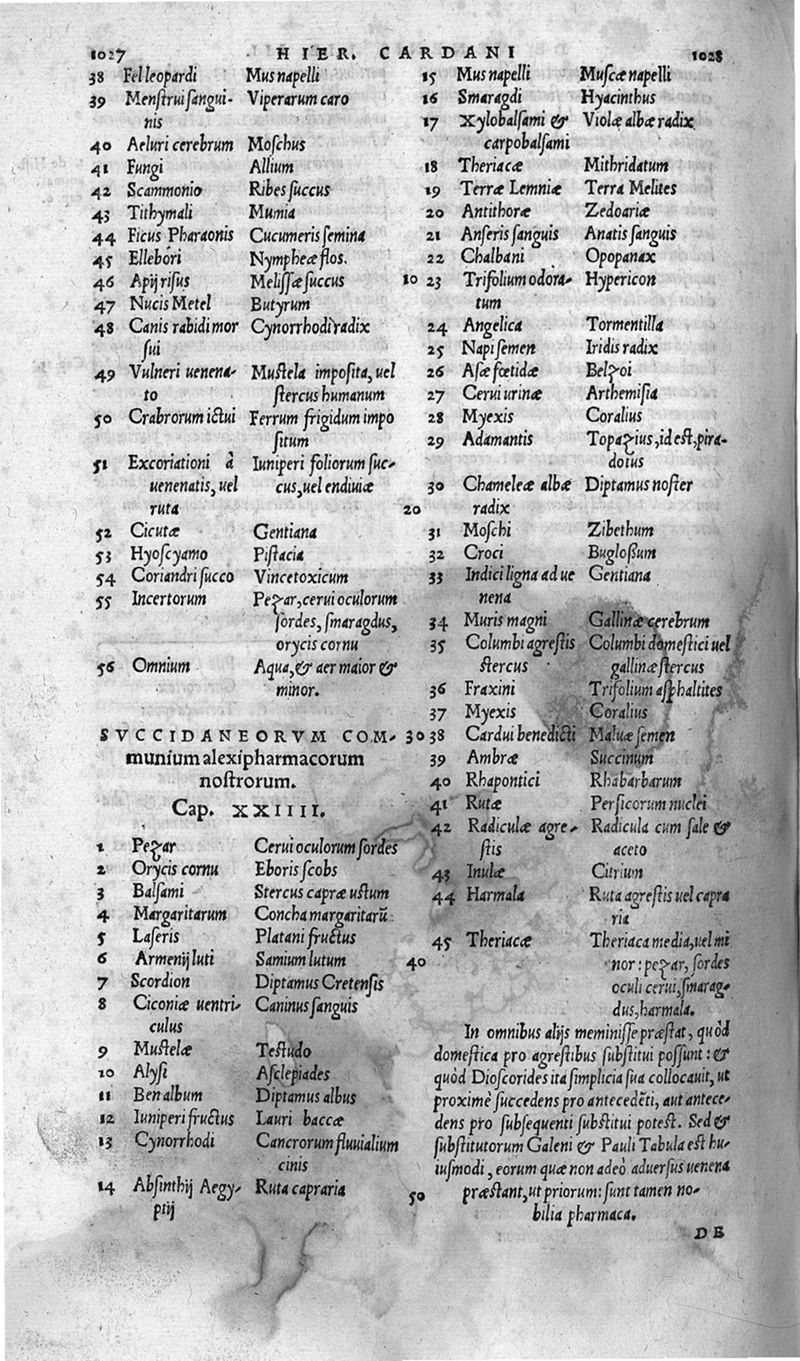 1027 HIER. CARDANI 1028
38 Fel leopardi Mus napelli
39 Menſtrui ſangui- Viperarum caro
nis
40 Aeluri cerebrum Moſchus
41 Fungi Allium
42 Scammonio Ribes ſuccus
43 Tithymali Mumia
44 Ficus Pharaonis Cucumeris ſemina
45 Ellebori Nympheæ flos.
46 Apij riſus Meliſſæ ſuccus
47 Nucis Metel Butyrum
48 Canis rabidi mor Cynorrhodi radix
ſui
49 Vulneri uenena- Muſtela impoſita, uel
to ſtercus humanum
50 Crabrorum ictui Ferrum frigidum impo
ſitum
51 Excoriationi à Iuniperi foliorum ſuc-
uenenatis, uel cus, uel endiuiæ
ruta
52 Cicutæ Gentiana
53 Hyoſcyamo Piſtacia
54 Coriandri ſucco Vincetoxicum
55 Incertorum Pezar, cerui oculorum
ſordes, ſmaragdus,
orycis cornu
56 Omnium Aqua, & aer maior &
minor.
SVCCIDANEORVM COM-
munium alexipharmacorum
noſtrorum.
Cap. XXIIII.
1 Pezar Cerui oculorum ſordes
2 Orycis cornu Eboris ſcobs
3 Balſami Stercus capræ uſtum
4 Margaritarum Concha margaritarũ
5 Laſeris Platani fructus
6 Armenij luti Samium lutum
7 Scordion Diptamus Cretenſis
8 Ciconiæ uentri- Caninus ſanguis
culus
9 Muſtelæ Teſtudo
10 Alyſi Aſclepiades
11 Ben album Diptamus albus
12 Iuniperi fructus Lauri baccæ
13 Cynorrhodi Cancrorum fluuialium
cinis
14 Abſinthij Aegy- Ruta capraria
ptij
15 Mus napelli Muſcæ napelli
16 Smaragdi Hyacinthus
17 Xylobalſami & Violæ albæ radix
carpobalſami
18 Theriacæ Mithridatum
19 Terræ Lemniæ Terra Melites
20 Antithoræ Zedoariæ
21 Anſeris ſanguis Anatis ſanguis
22 Chalbani Opopanax
10 23 Trifolium odora- Hypericon
tum
24 Angelica Tormentilla
25 Napi ſemen Iridis radix
26 Aſæ fœtidæ Belzoi
27 Cerui urinæ Arthemiſia
28 Myexis Coralius
29 Adamantis Topazius, id eſt, pira-
dotus
30 Chameleæ albæ Diptamus noſter
20 radix
31 Moſchi Zibethum
32 Croci Bugloßum
33 Indici ligna ad ue Gentiana
nena
34 Muris magni Gallinæ cerebrum
35 Columbi agreſtis Columbi domeſtici uel
ſtercus gallinæ ſtercus
36 Fraxini Trifolium aſphaltites
37 Myexis Coralius
30 38 Cardui benedicti Maluæ ſemen
39 Ambræ Succinum
40 Rhapontici Rhabarbarum
41 Rutæ Perſicorum nuclei
42 Radiculæ agre- Radicula cum ſale &
ſtis aceto
43 Inulæ Citrium
44 Harmala Ruta agreſtis uel capra
ria
45 Theriacæ Theriaca media, uel mi
40 nor: pezar, ſordes
oculi cerui, ſmarag-
dus, harmala.
In omnibus alijs meminiſſe præſtat, quòd
domeſtica pro agreſtibus ſubſtitui poſſunt: &
quòd Dioſcorides ita ſimplicia ſua collocauit, ut
proximè ſuccedens pro antecedẽti, aut antece-
dens pro ſubſequenti ſubſtitui poteſt. Sed &
ſubſtitutorum Galeni & Pauli Tabula eſt hu-
iuſmodi, eorum quæ non adeò aduerſus uenena
50 præſtant, ut priorum: ſunt tamen no-
bilia pharmaca.
DE